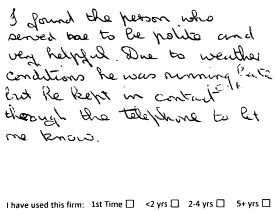 I found the person who
served me to be polite and
very helpful. Due to weather
conditions he was running late
but he kept in contact
through the telephone to let
me know.
I have used this firm: 1st Time □ <2 yrs □ 2-4 yrs □ 5+ yrs □